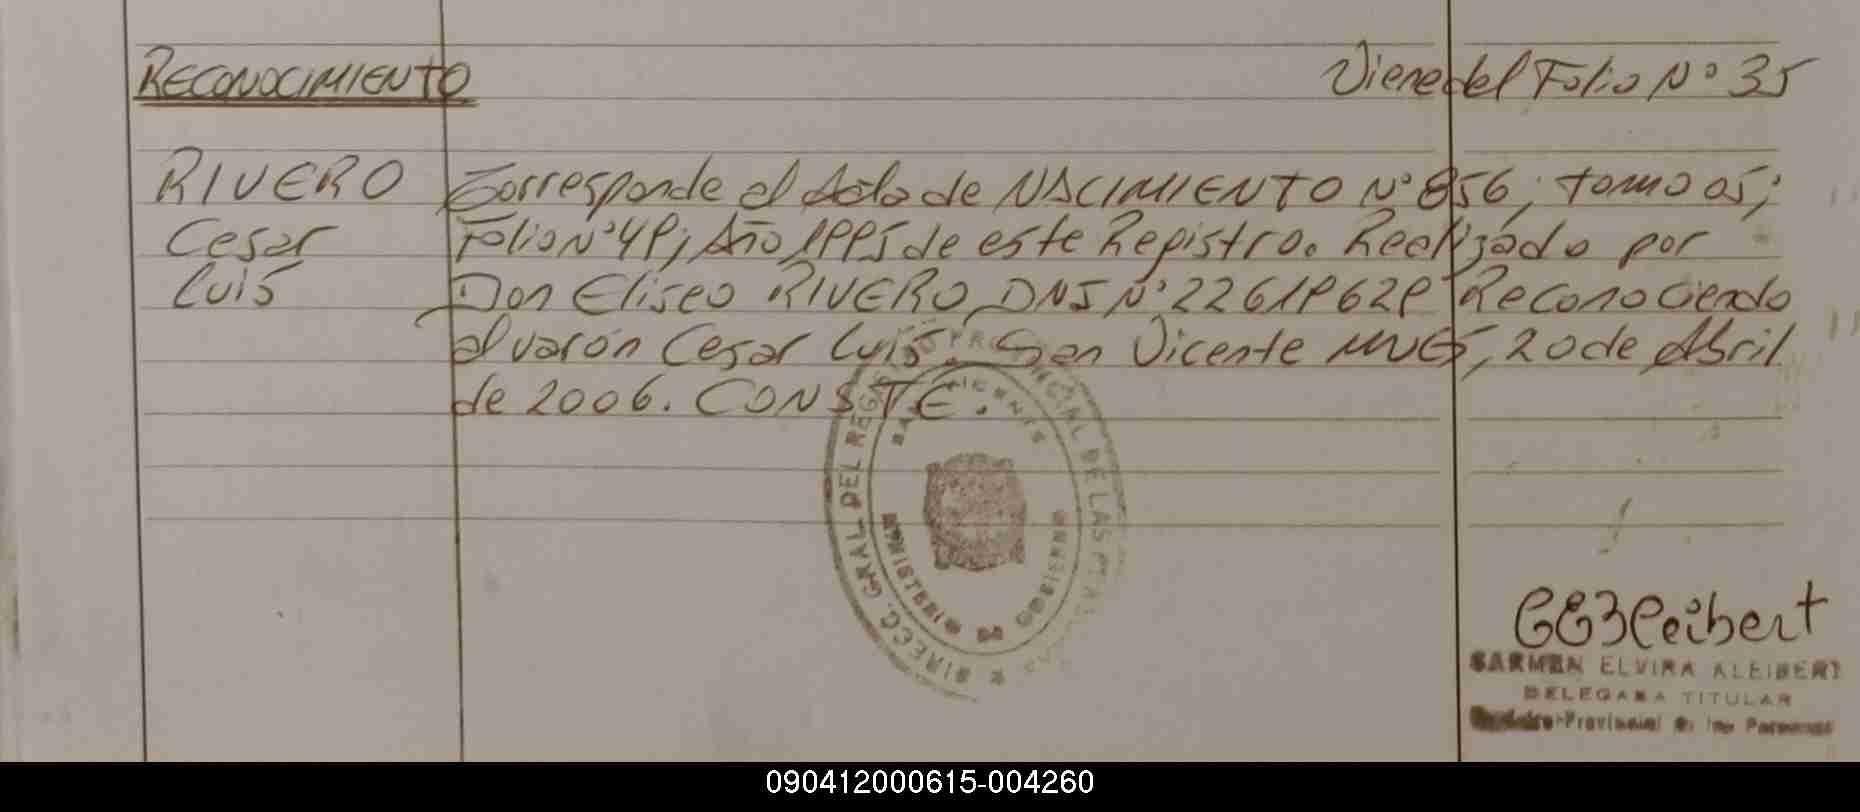 RECONOCIMIENTO Viene del Folio Nº 35
RIVERO Corresponde al Acta de NACIMIENTO Nº 856; tomo 05;
Cesar Folio Nº 49; Año 1995 de este Registro. Realizado por
Luis Don Eliseo RIVERO DNI Nº 22619629 Reconociendo
al varón Cesar Luis. San Vicente MNES, 20 de Abril
de 2006. CONSTE.
DIRECC. GRAL. DEL REGISTRO PROVINCIAL DE LAS PERSONAS
SAN VICENTE
MINISTERIO DE GOBIERNO
CARMEN ELVIRA ALEIBERT
DELEGADA TITULAR
Provincial de las Personas
090412000615-004260